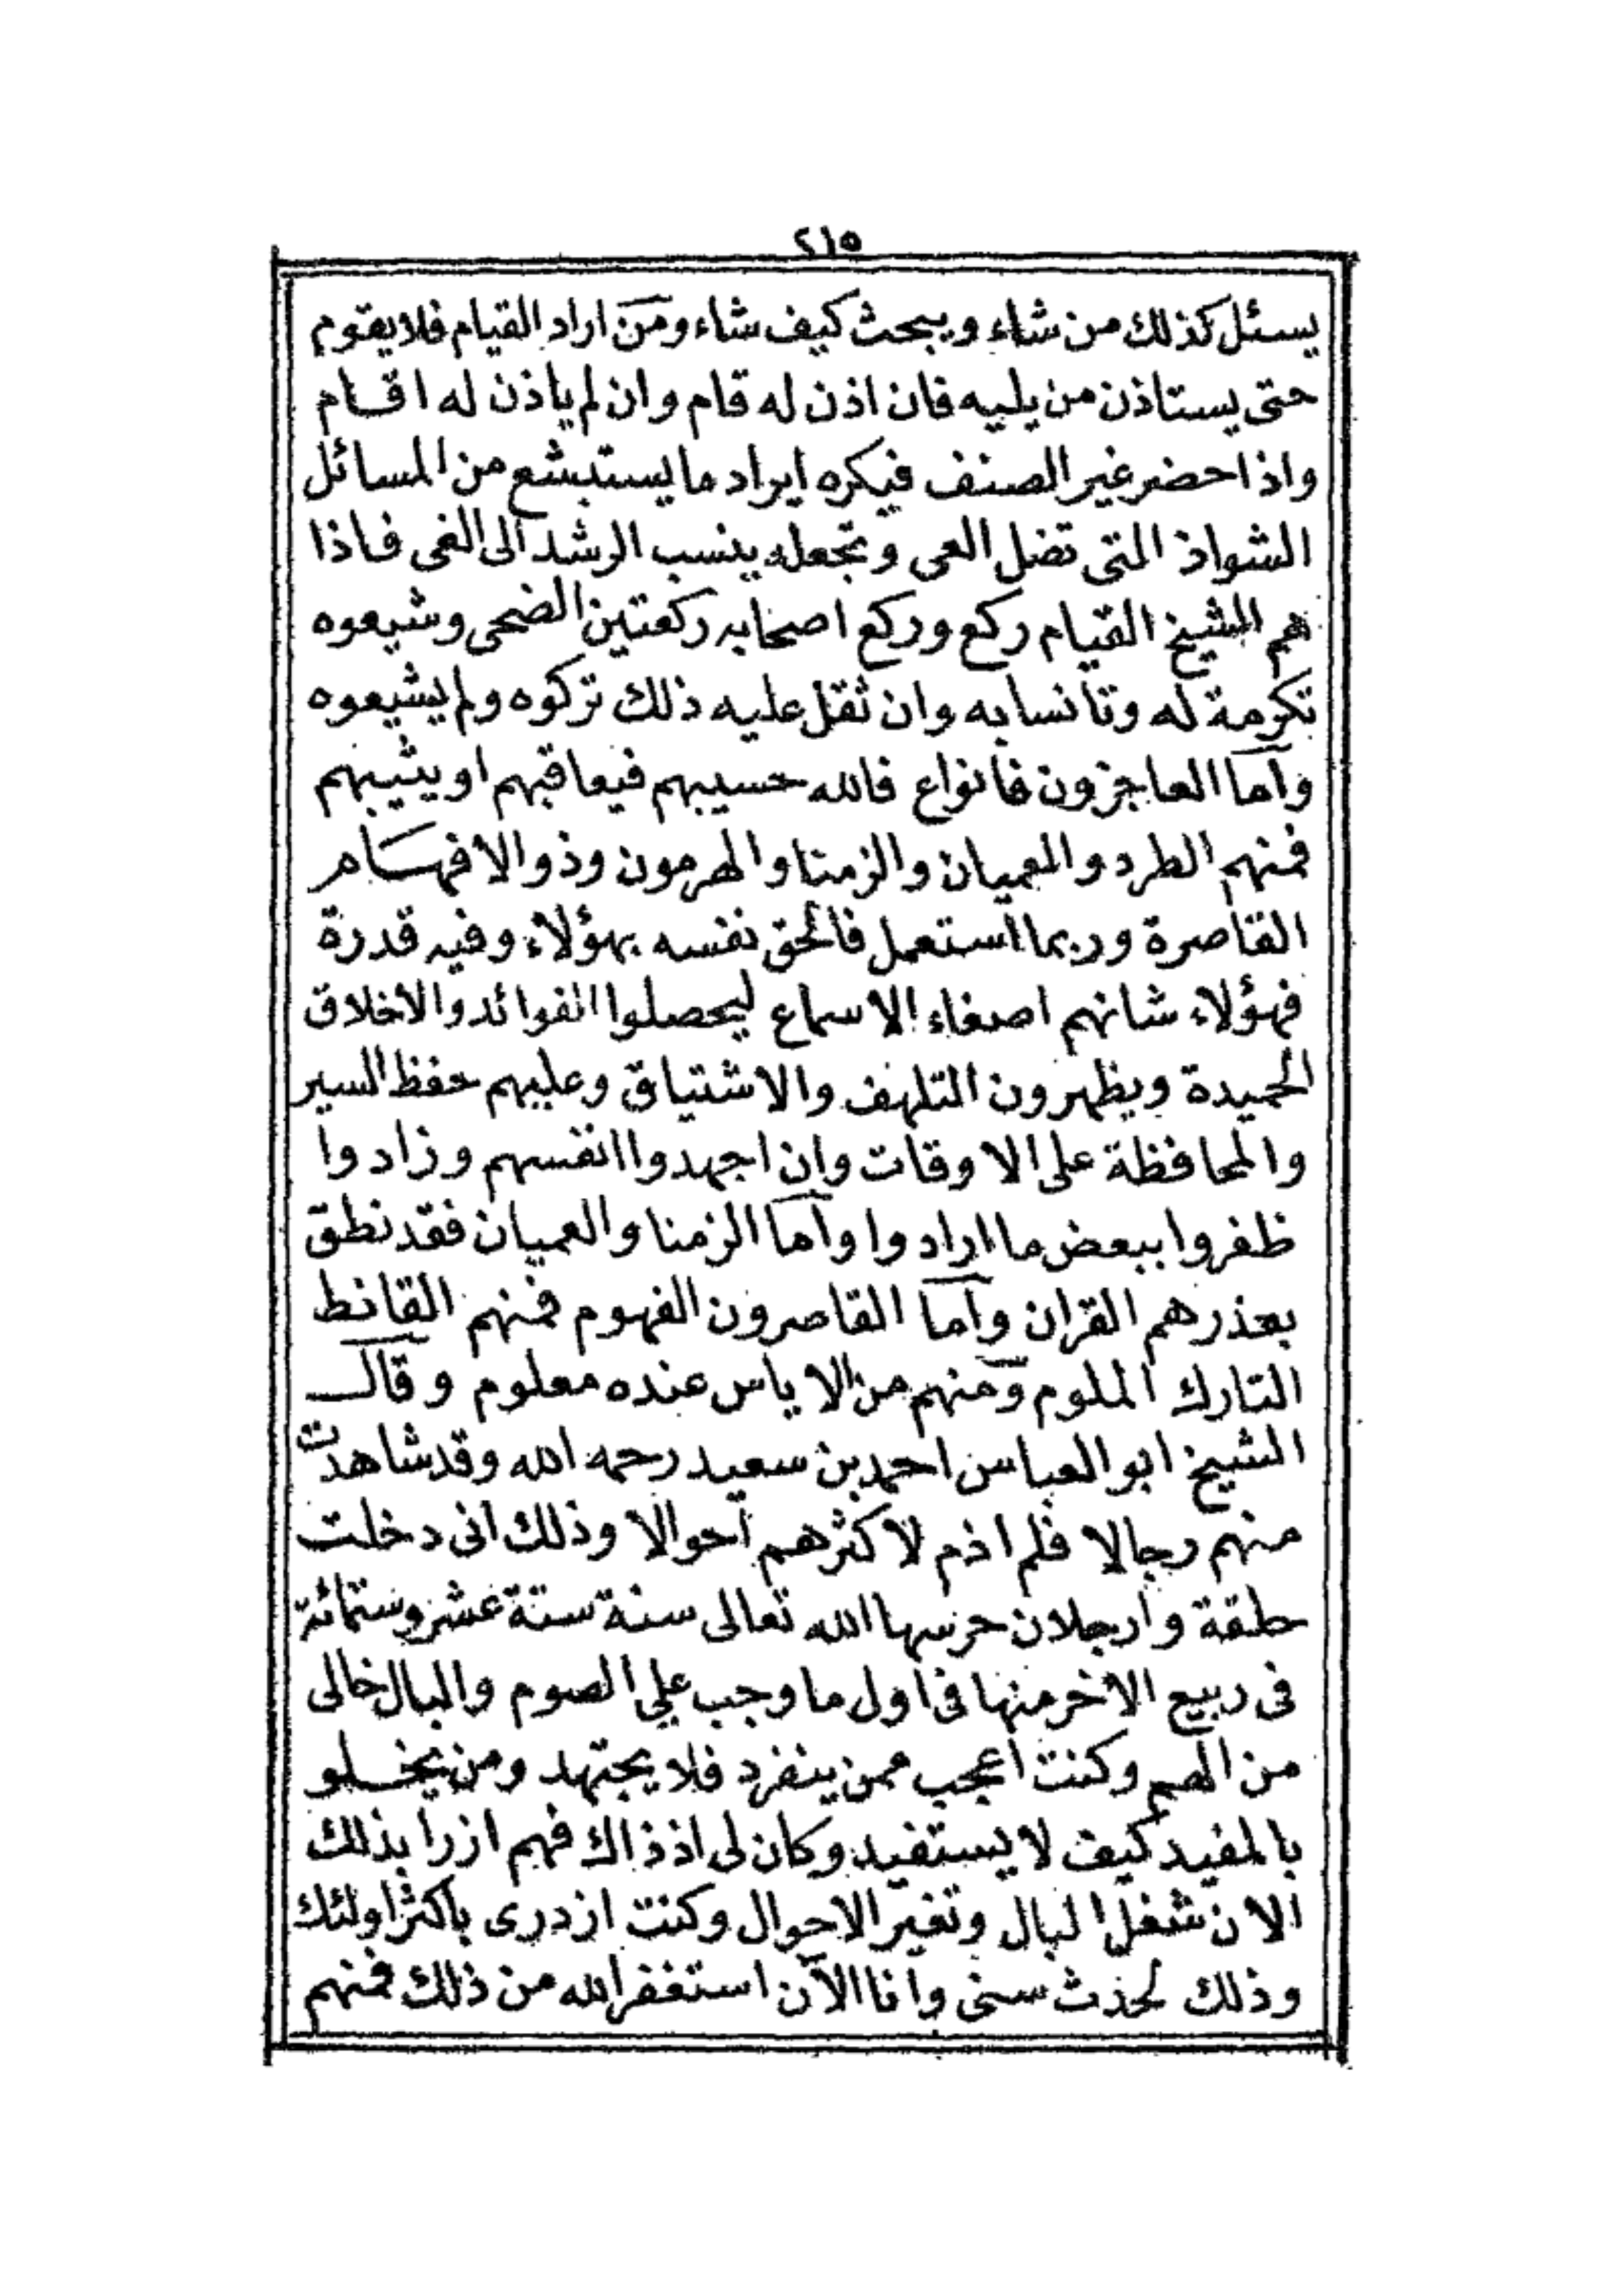 ٢١٥
يسئل كذلك من شاء ويبحث كيف شاء ومن اراد القيام فلا يقوم
حتى يستاذن من يليه فان اذن له قام وان لم ياذن له اقام
واذا حضر غير الصنف فيكره ايراد ما يستبشع من المسائل
الشواذ التي تضل العمى وتجعله ينسب الرشد الى الغى فاذا
هم الشيخ القيام ركع وركع اصحابه ركعتين الضحى وشيعوه
تكرمة له وتانسا به وان ثقل عليه ذلك تركوه ولم يشيعوه
وأما العاجزون فانواع فالله حسيبهم فيعاقبهم او يثيبهم
فمنهم الطرد والعميان والزمنا والهرمون وذوا الافهام
القاصرة وربما استعمل فالحق نفسه بهؤلاء وفيه قدرة
فهؤلاء شانهم اصغاء الاسماع ليحصلوا الفوائد والأخلاق
الحميدة ويظهرون التلهف والاشتياق وعليهم حفظ السير
والمحافظة على الاوقات وان اجهدوا انفسهم وزادوا
ظفروا ببعض ما ارادوا وأما الزمنا والعميان فقد نطق
بعذرهم القران وأما القاصرون الفهوم فمنهم القانط
التارك الملوم ومنهم من الاياس عنده معلوم وقال
الشيخ ابو العباس احمد بن سعيد رحمه الله وقد شاهدت
منهم رجالا فلم اذم لأكثرهم أحوالا وذلك انى دخلت
حلقة وارجلان حرسها الله تعالى سنة ستة عشر وستمائة
فى ربيع الاخر منها فى اول ما وجب علي الصوم والبال خالى
من الهم وكنت أعجب ممن ينفرد فلا يجتهد ومن يخلو
بالمفيد كيف لا يستفيد وكان لى اذ ذاك فهم ازرا بذلك
الان شغل البال وتغير الاحوال وكنت ازدرى باكثر اولئك
وذلك لحدث سنى وانا الآن استغفر الله من ذلك فمنهم